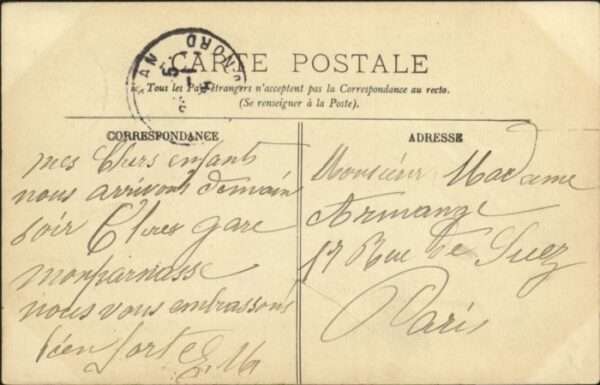 CARTE POSTALE
Tous les Pays étrangers n'acceptent pas la Correspondance au recto.
(Se renseigner à la Poste).
CORRESPONDANCE
mes Chers enfant
nous arrivons demain
soir heures gare
monparnasse
nous vous embrassons
bien fort
ADRESSE
Monsieur Madame
Armange
17 Rue De Suez
Paris
NORD